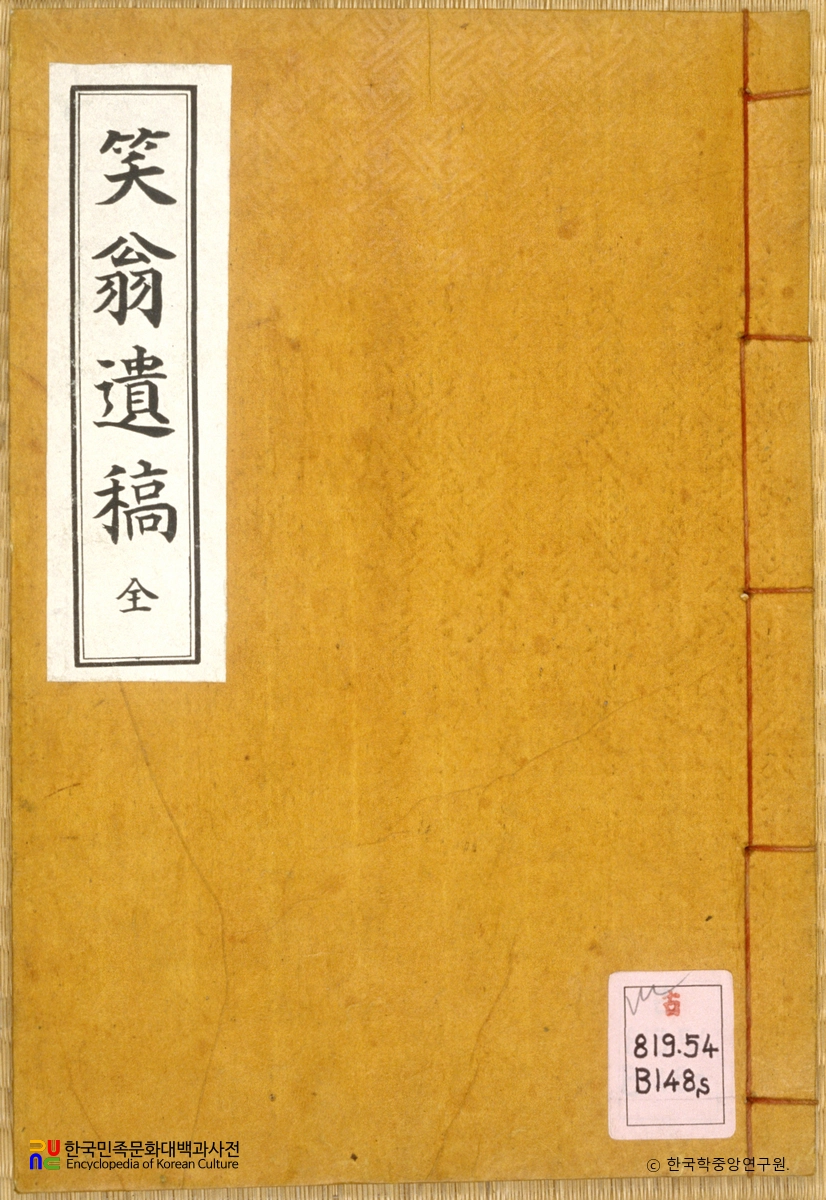 笑翁遺稿 全
古
819.54
B148s
한국민족문화대백과사전
Encyclopedia of Korean Culture
ⓒ 한국학중앙연구원.